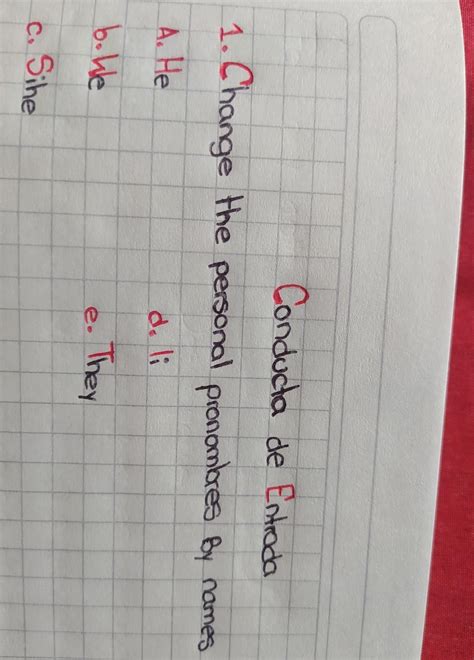 Conducta de Entrada
1. Change the personal pronombres By names
A. He
d. Ii
b. We
e. They
c. Sihe